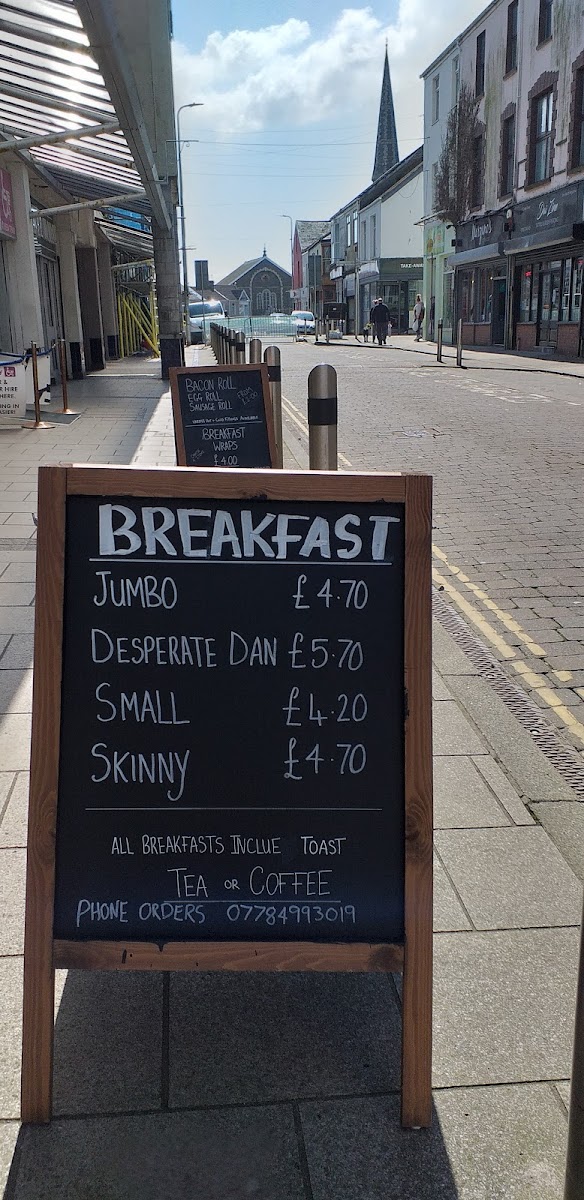 BREAKFAST
JUMBO £4.70
DESPERATE DAN £5.70
SMALL £4.20
SKINNY £4.70
ALL BREAKFASTS INCLUE TOAST
TEA OR COFFEE
PHONE ORDERS 07784993019
BACON ROLL
EGG ROLL
SAUSAGE ROLL
BREAKFAST
WRAPS
£4.00
TAKE-AWAY